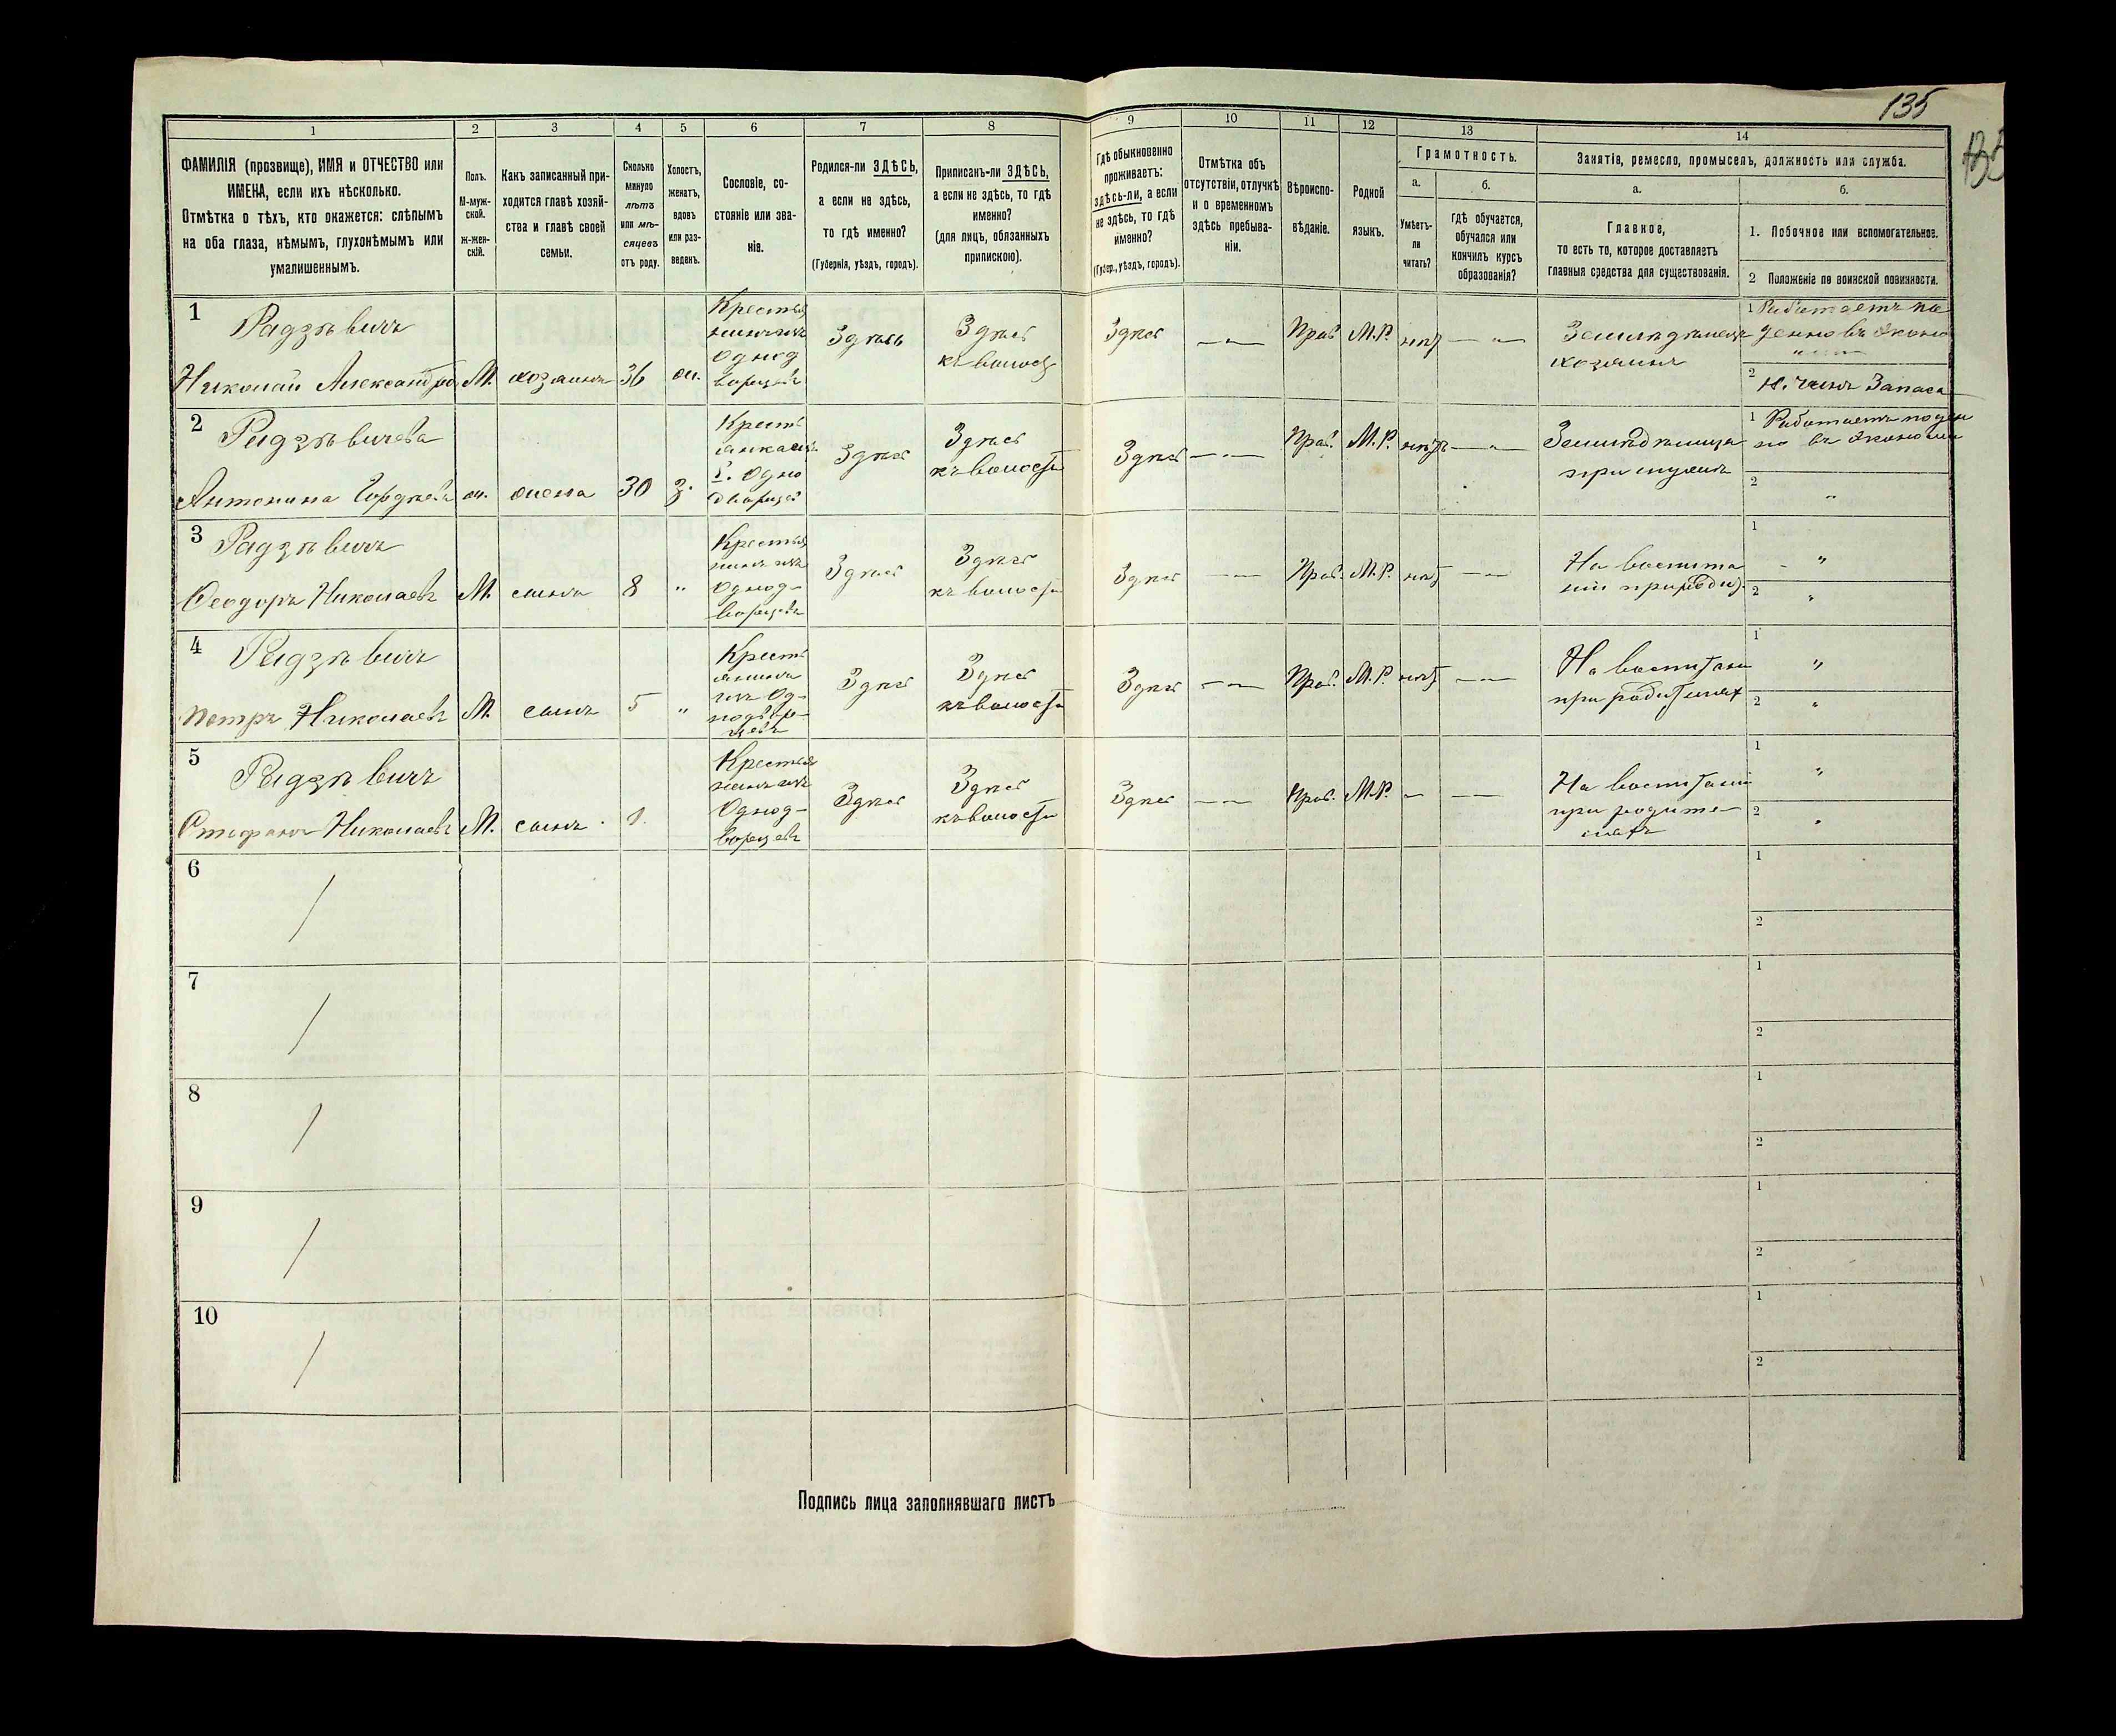 135
1 2 3 4 5 6 7 8 9 10 11 12 13 14
ФАМИЛІЯ (прозвище), ИМЯ и ОТЧЕСТВО или
ИМЕНА, если ихъ нѣсколько.
Отмѣтка о тѣхъ, кто окажется: слѣпымъ
на оба глаза, нѣмымъ, глухонѣмымъ или
умалишеннымъ.
Полъ.
М-муж-
ской.
ж-жен-
скій.
Какъ записанный при-
ходится главѣ хозяй-
ства и главѣ своей
семьи.
Сколько
минуло
лѣтъ
или мѣ-
сяцевъ
отъ роду.
Холостъ,
женатъ,
вдовъ
или раз-
веденъ.
Сословіе, со-
стояніе или зва-
ніе.
Родился-ли ЗДѢСЬ,
а если не здѣсь,
то гдѣ именно?
(Губернія, уѣздъ, городъ).
Приписанъ-ли ЗДѢСЬ,
а если не здѣсь, то гдѣ
именно?
(для лицъ, обязанныхъ
припискою).
Гдѣ обыкновенно
проживаетъ:
здѣсь-ли, а если
не здѣсь, то гдѣ
именно?
(Губер., уѣздъ, городъ).
Отмѣтка объ
отсутствіи, отлучкѣ
и о временномъ
здѣсь пребыва-
ніи.
Вѣроиспо-
вѣданіе.
Родной
языкъ.
Грамотность.
а.
Умѣетъ-
ли
читать?
б.
Гдѣ обучается,
обучался или
кончилъ курсъ
образованія?
Занятіе, ремесло, промыселъ, должность или служба.
а.
Главное,
то есть то, которое доставляетъ
главныя средства для существованія.
б.
1. Побочное или вспомогательное.
2 Положеніе по воинской повинности.
1
Радзѣвичъ
Николай Александро
М. хозяинъ 36 ж.
Крестья
нинъ изъ
Однод
ворцевъ
Здѣсь
Здѣсь
къ волост
Здѣсь
— " —
Прав. М.Р. нѣт — " —
Земледѣлецъ
хозяинъ
1 Работаетъ по
денно въ Эконо
2 Н. чинъ Запаса
2
Радзѣвичева
Антонина Гордѣева
ж. жена 30 з.
Кресть
янка изъ
Одно
дворцевъ
Здѣсь
Здѣсь
къ волости
Здѣсь — " —
Прав. М.Р. нѣтъ — " —
Земледѣлица
при мужѣ
1 Работаетъ поден
но въ Экономіи
2 "
3
Радзѣвичъ
Ѳеодоръ Николаевъ
М. сынъ 8 "
Крестья
нинъ изъ
Однод-
ворцевъ
Здѣсь
Здѣсь
къ волости
Здѣсь — " —
Прав. М.Р. нѣт — " —
На воспита
ніи при родит.
1 "
2 "
4
Радзѣвичъ
Петръ Николаевъ
М. сынъ 5 "
Кресть
янинъ
изъ Од-
нодвор-
цевъ
Здѣсь
Здѣсь
къ волости
Здѣсь — " —
Прав. М.Р. нѣт — " —
На воспитани
при родителях
1 "
2 "
5
Радзѣвичъ
Стефанъ Николаевъ
М. сынъ 1.
Крестья
нинъ изъ
Однод-
ворцевъ
Здѣсь
Здѣсь
къ волости
Здѣсь — " —
Прав. М.Р. — — " —
На воспитаніи
при родите-
ляхъ
1 "
2 "
6
1
2
7
1
2
8
1
2
9
1
2
10
1
2
Подпись лица заполнявшаго листъ